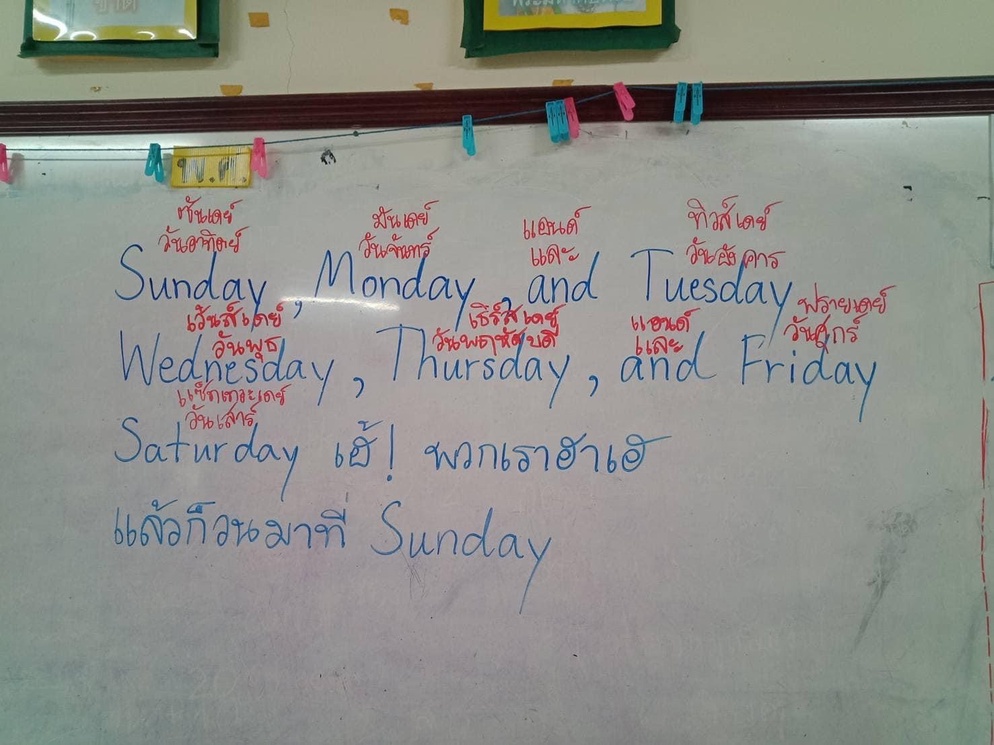 ซันเดย์ มันเดย์ แอนด์ ทิวส์เดย์
วันอาทิตย์ วันจันทร์ และ วันอังคาร
Sunday, Monday, and Tuesday
เว้นส์เดย์ เธิร์สเดย์ แอนด์ ฟรายเดย์
วันพุธ วันพฤหัสบดี และ วันศุกร์
Wednesday, Thursday, and Friday
แซ็ทเทอะเดย์
วันเสาร์
Saturday เฮ้! พวกเราฮาเฮ
แล้วก็วนมาที่ Sunday